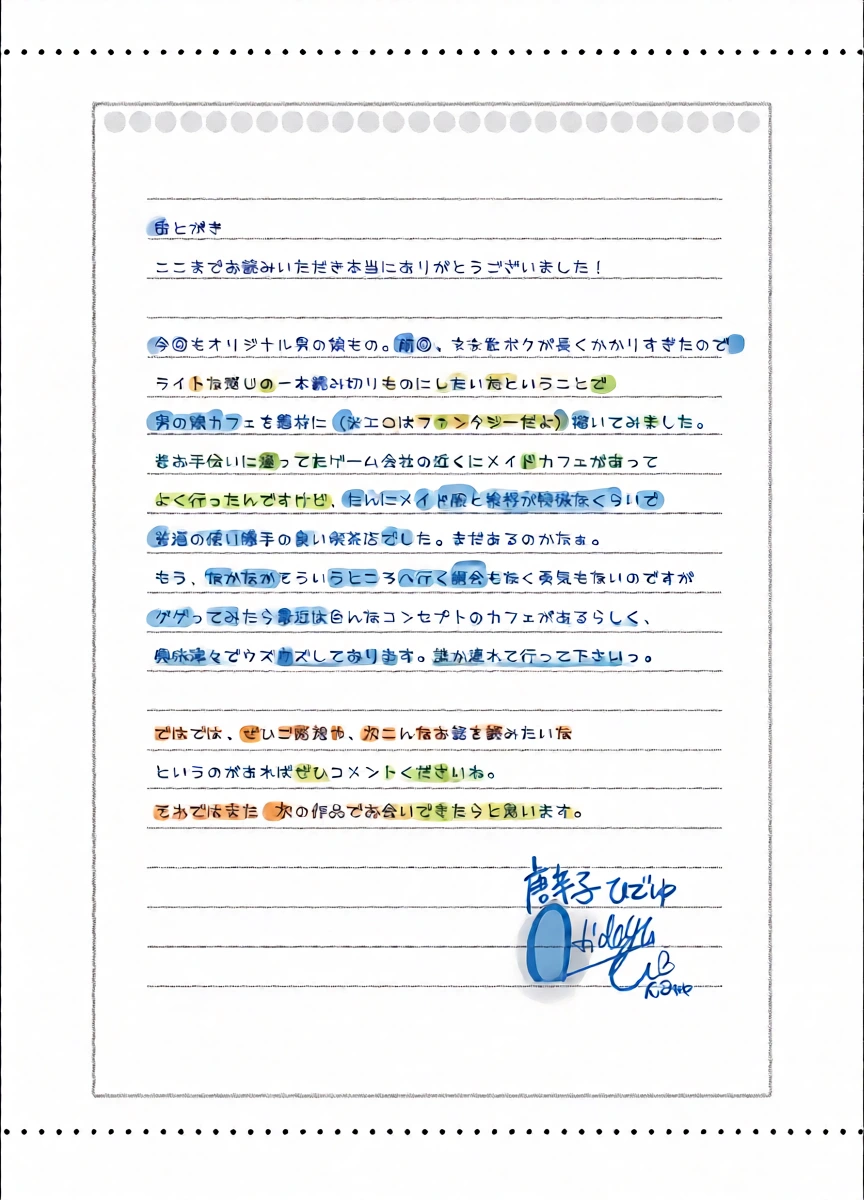 あとがき
ここまでお読みいただき本当にありがとうございました！
今回もオリジナル男の娘もの。前回、ボクが長くかかりすぎたので
ライトな感じの一本読み切りものにしたいなということで
男の娘カフェを題材に（※エロはファンタジーだよ）描いてみました。
昔お手伝いに通ってたゲーム会社の近くにメイドカフェがあって
よく行ったんですけど、たんにメイド服と装が綺麗なくらいで
普通の使い勝手の良い喫茶店でした。まだあるのかなぁ。
もう、なかなかそういうところへ行く機会もなく勇気もないのですが
ググってみたら最近は色んなコンセプトのカフェがあるらしく、
興味津々でウズウズしております。誰か連れて行って下さいっ。
ではでは、ぜひご感想や、次こんなお話を読みたいな
というのがあればぜひコメントくださいね。
それではまた 次の作品でお会いできたらと思います。
唐辛子ひでゆ